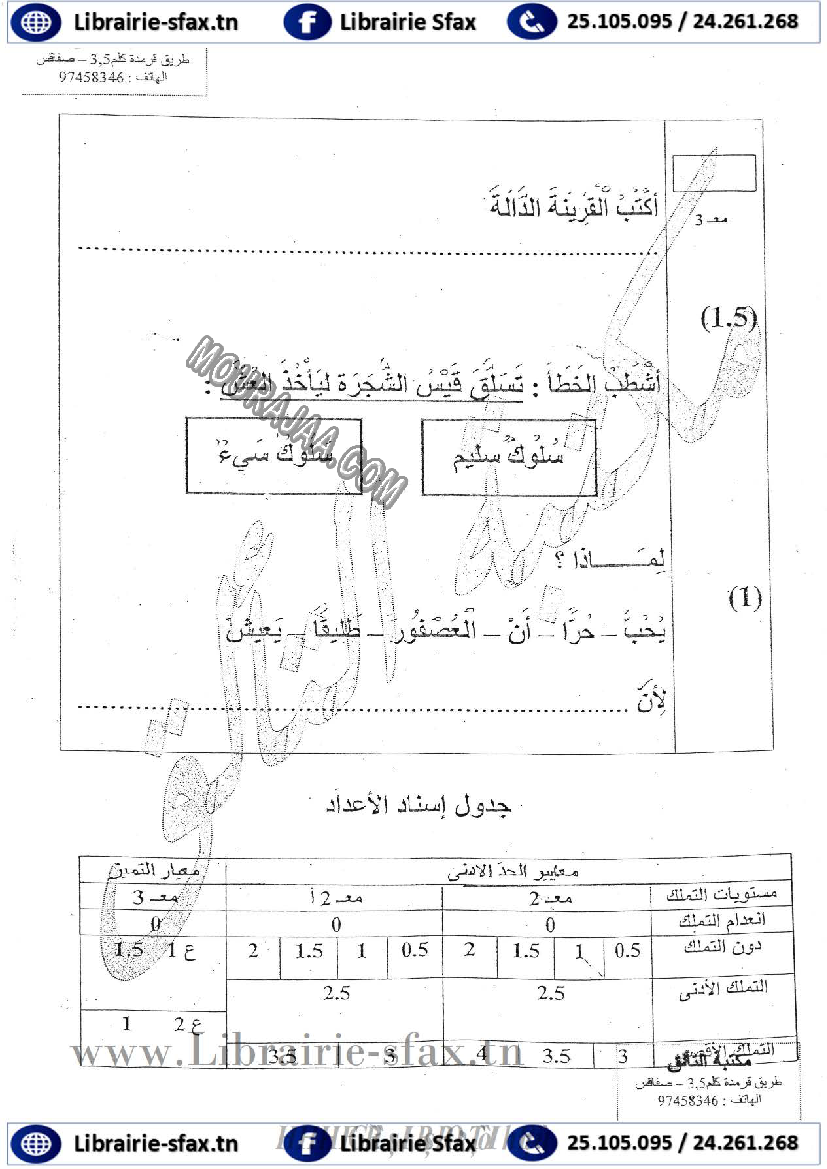 Librairie-sfax.tn Librairie Sfax 25.105.095 / 24.261.268
طريق قرمدة كلم3,5 – صفاقص
الهاتف : 97458346
أكْتُبُ الْقَرِينَةَ الدَّالَةَ
معـ 3
(1.5)
أشْطَبُ الخَطَأ : تَسَلَّقَ قَيْسُ الشَّجَرَة ليَأخُذَ العُشَّ :
سُلُوكٌ سليم
سُلُوكٌ سَيءٌ
MOURAJAA.COM
لِمَـــــاذا ؟
(1)
يُحْبُّ – حُرًّا – أنْ – الْعُصْفُورَ – طَلِيقًا – يَعيشَ
لِأنّ
جدول إسناد الأعداد
معايير الحد الادنى
معيار التميز
مستويات التملك
معـ 2
معـ 2 أ
معـ 3
انعدام التملك
0
0
0
دون التملك
0.5 1 1.5 2
0.5 1 1.5 2
ع 1 1.5
التملك الأدنى
2.5
2.5
ع 2 1
التملك الأقصى
3 3.5 4
3 3.5
www.Librairie-sfax.tn
مكتبة التألق
طريق قرمدة كلم3,5 – صفاقص
الهاتف : 97458346
Librairie-sfax.tn Librairie Sfax 25.105.095 / 24.261.268